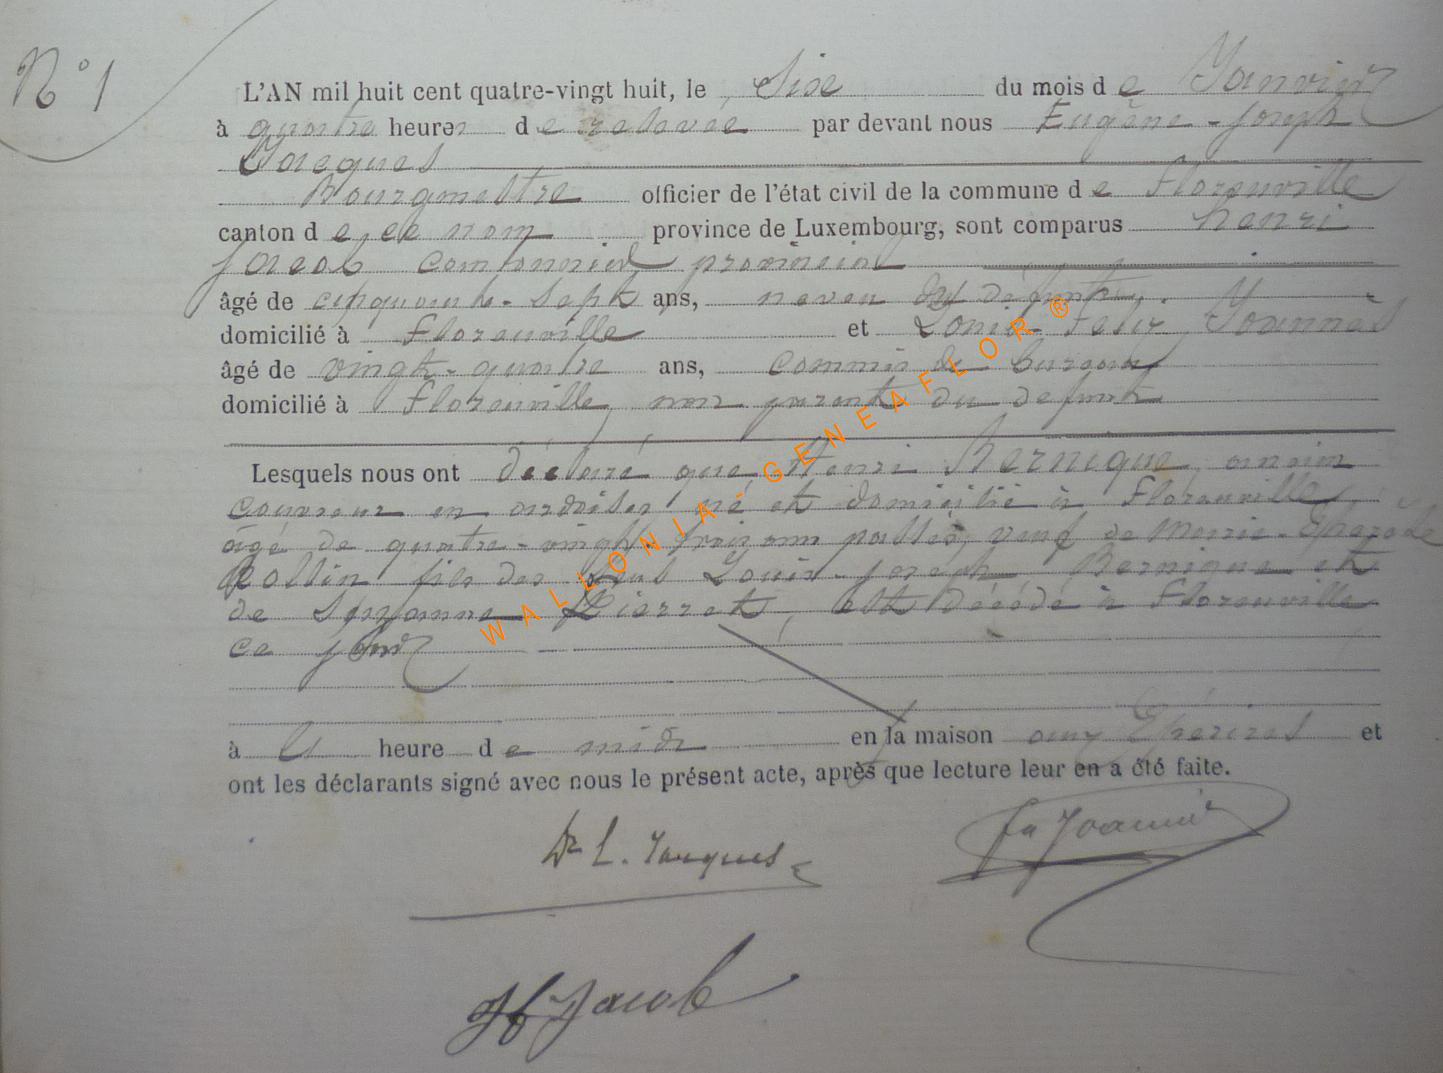 N° 1
L'AN mil huit cent quatre-vingt huit, le Six du mois de Janvier
à quatre heures de relevée par devant nous Eugène-Joseph
Jacques
Bourgmestre officier de l'état civil de la commune de Florenville
canton de ce nom province de Luxembourg, sont comparus henri
Jacob cantonnier provincial
âgé de cinquante-sept ans, neveu du défunt,
domicilié à Florenville et Louis Joannès
âgé de vingt-quatre ans, commis de bureau
domicilié à Florenville, non parent du defunt
Lesquels nous ont déclaré que Henri Bernique ancien
couvreur en ardoises né et domicilié à Florenville,
âgé de quatre-vingt trois ans passés, veuf de Marie-
Rollin fils des Louis-Joseph Bernique et
de Suzanne Pierret, est décédé à Florenville
ce jour
à heure de midi en la maison aux et
ont les déclarants signé avec nous le présent acte, après que lecture leur en a été faite.
Dr E. Jacques
Joannès
H Jacob
WALLONIA-GENEAFLOR®